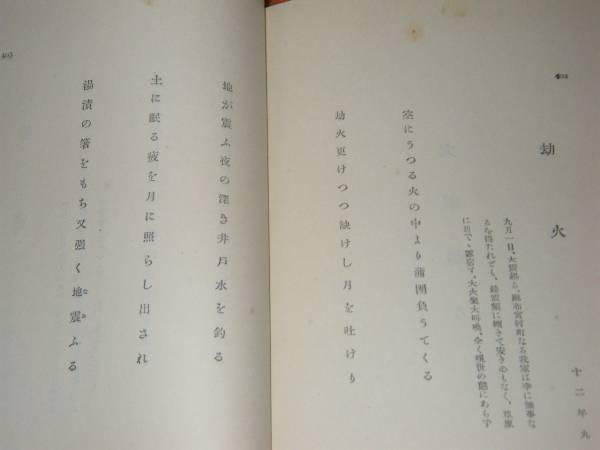 十二年九
劫火
九月一日、大震起る。麻布宮村町なる我家は幸に無事な
るを得たれども、餘震頻に
に出でゝ露宿す。大火聚大叫喚、全く現世の態にあらず
空にうつる火の中より蒲團負うてくる
劫火更けつつ缺けし月を吐けり
地が震ふ夜の深き井戸水を釣る
土に眠る疲を月に照らし出され
湯漬の箸をもち又强く地震ふる